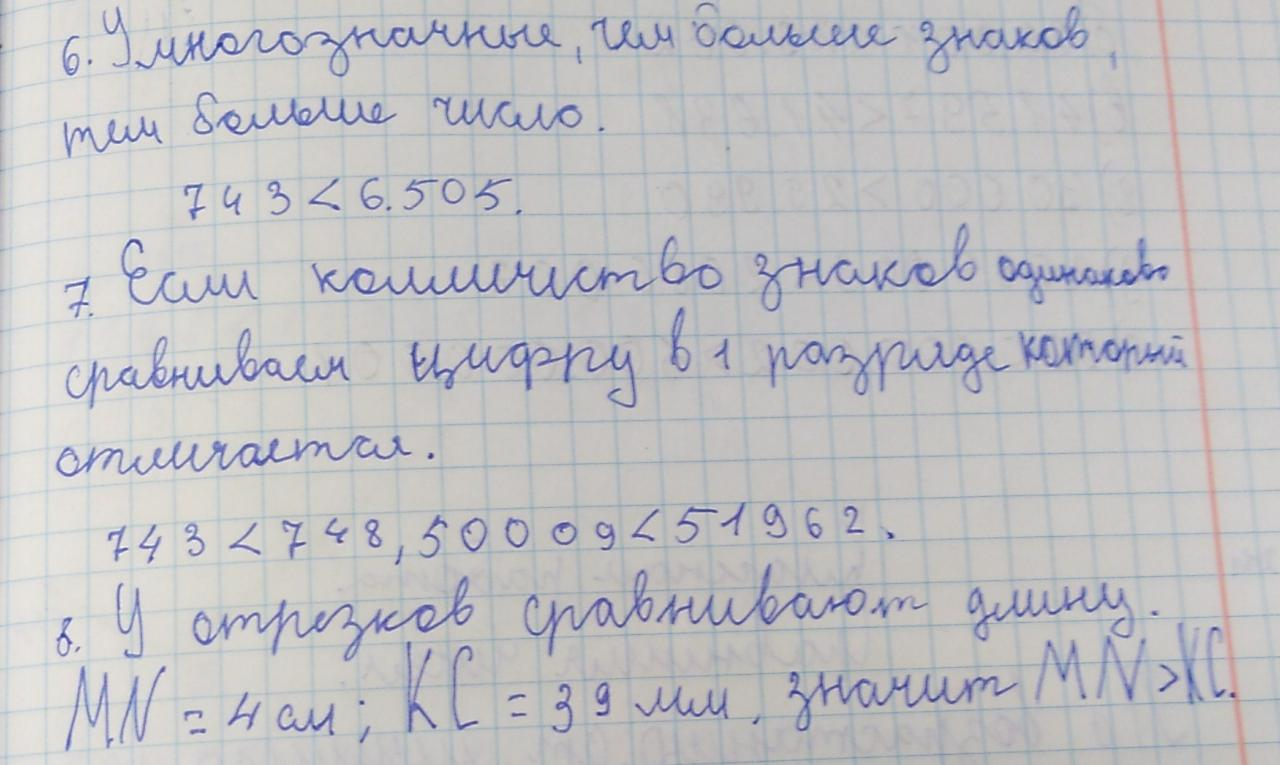 6. У многозначные, чем больше знаков,
тем больше число.
743 < 6.505.
7. Если колличество знаков одинаково
сравниваем цифру в 1 разряде который
отличается.
743 < 748, 50009 < 51962.
8. У отрезков сравнивают длину.
MN = 4 см; КС = 39 мм, значит MN > КС.